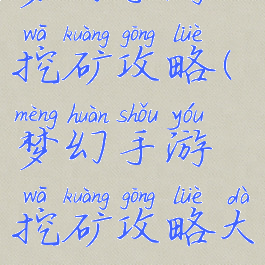 wā kuàng gōng lüè
挖矿攻略(
mèng huàn shǒu yóu
梦幻手游
wā kuàng gōng lüè dà
挖矿攻略大